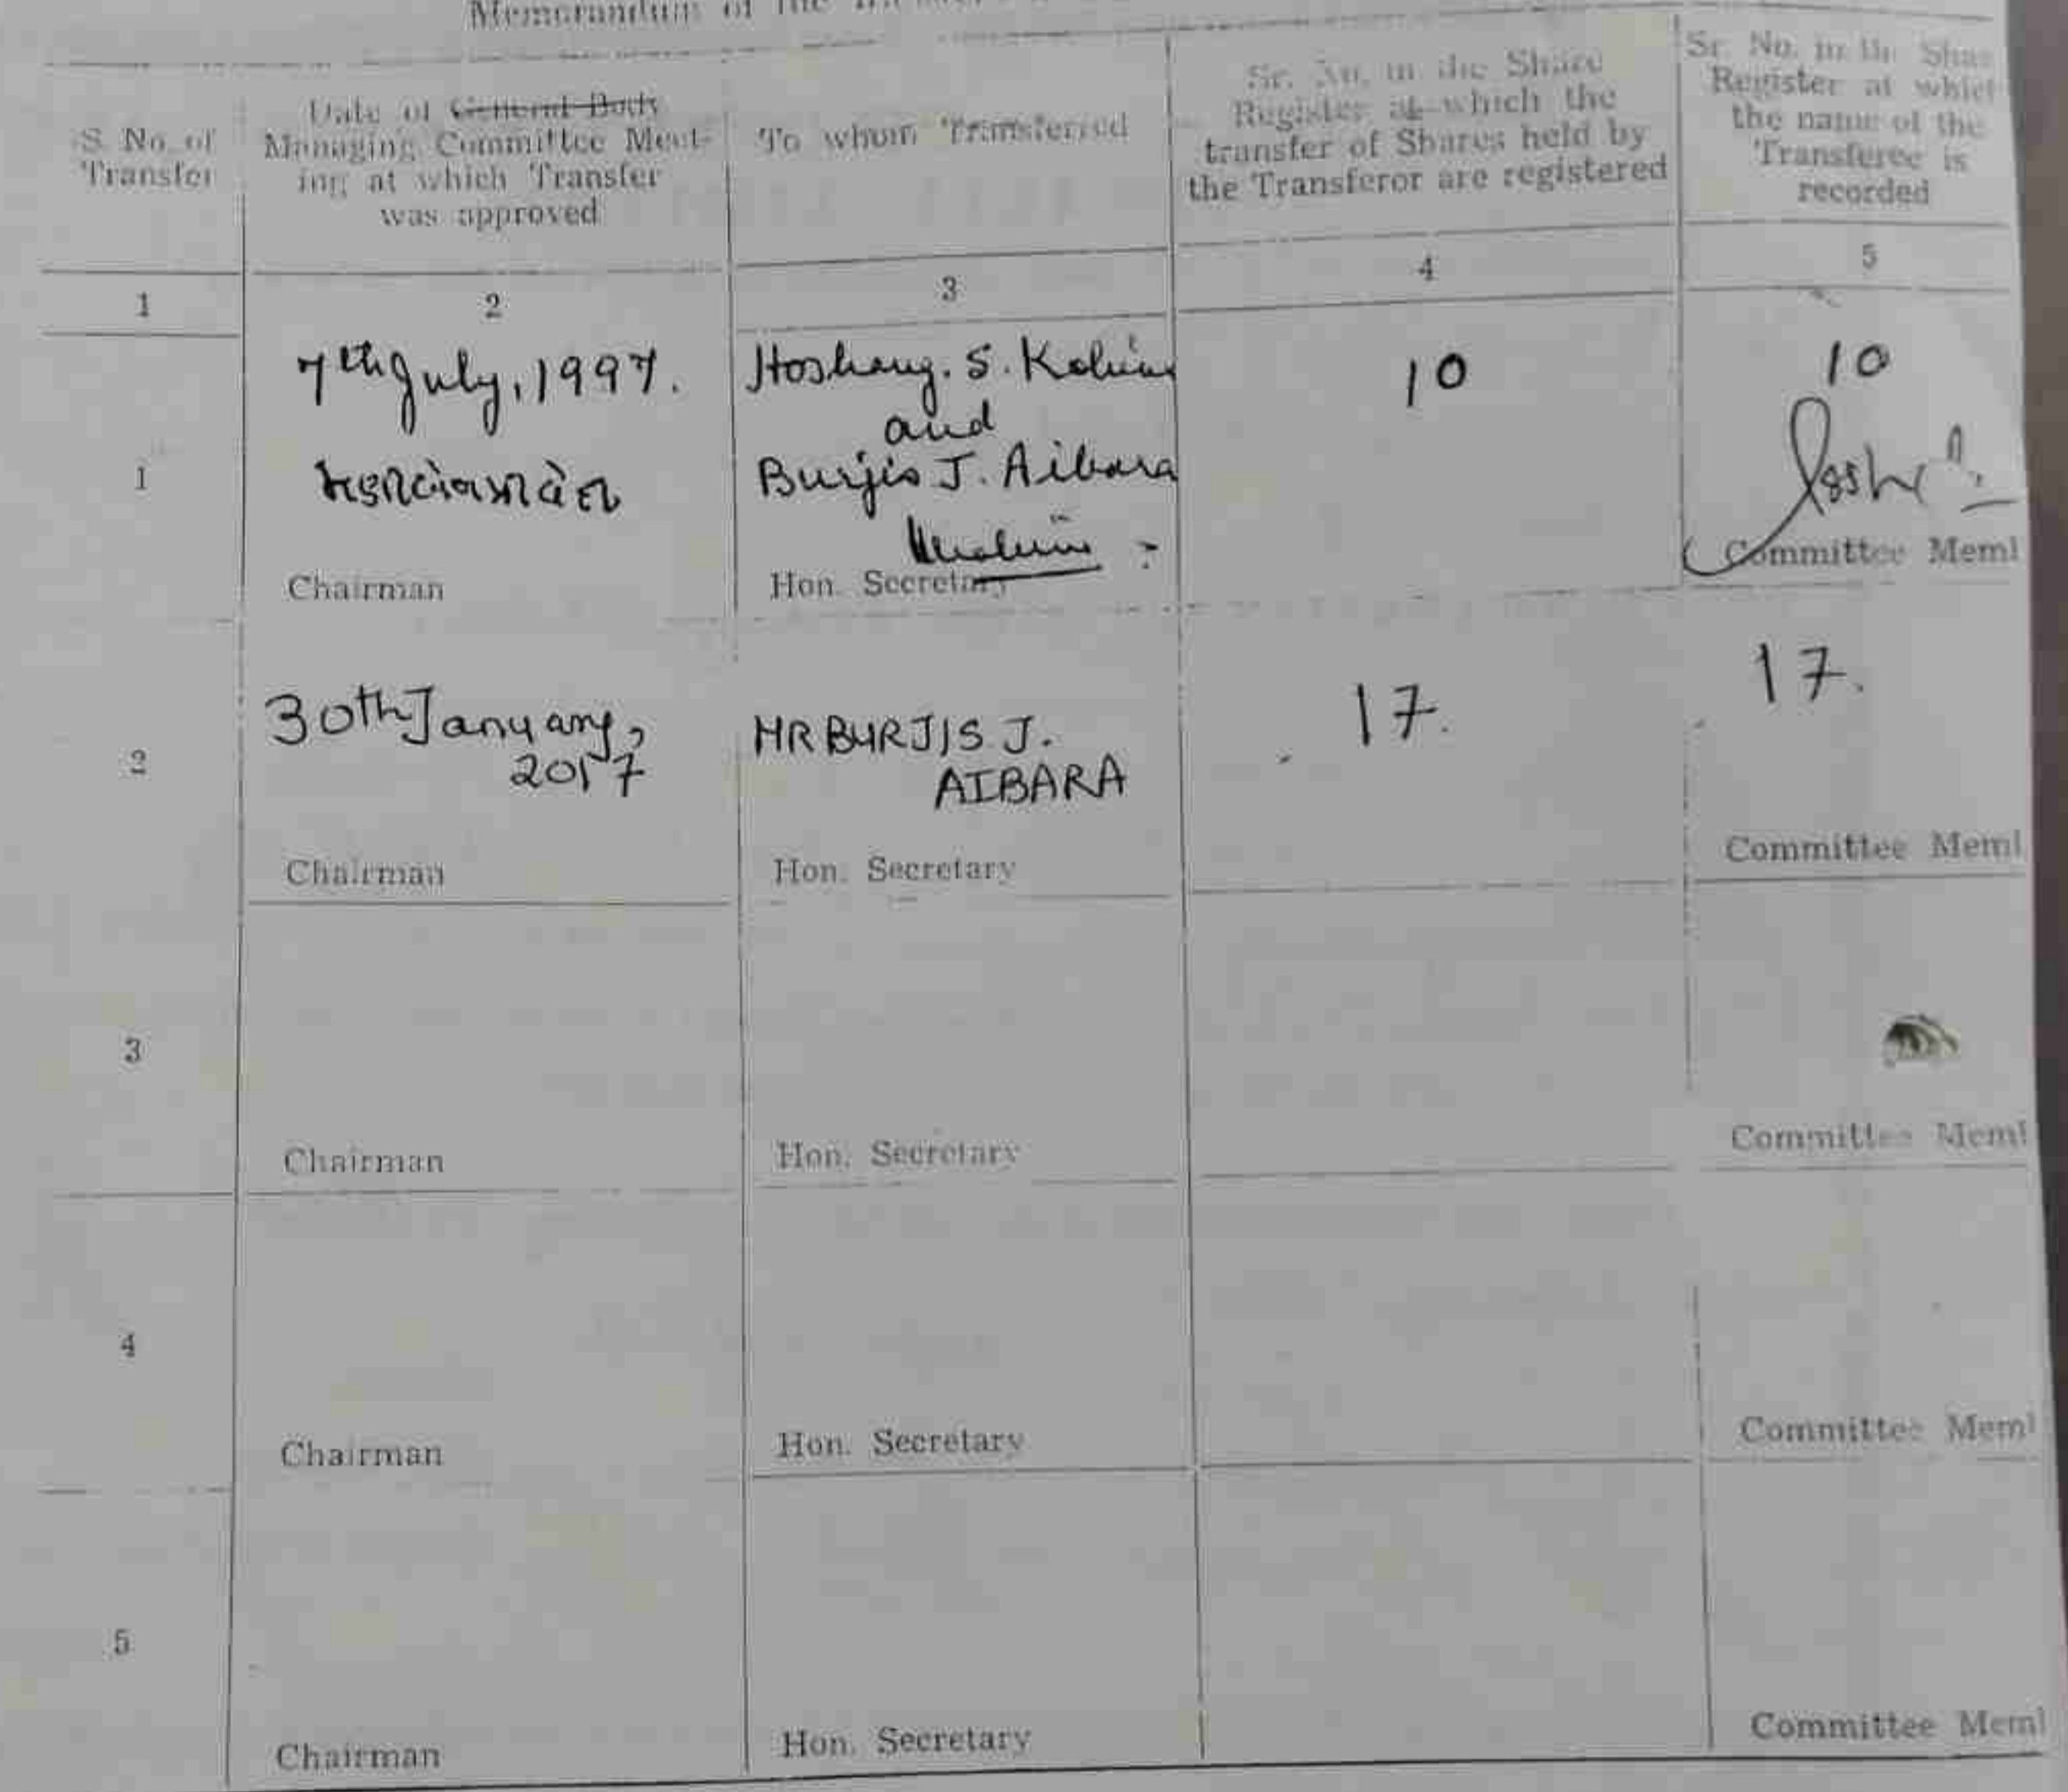 Memorandum of the
S. No. of
Transfer
Date of General Body
Managing Committee Meet-
ing at which Transfer
was approved
To whom Transferred
Sr. No. in the Share
Register at which the
transfer of Shares held by
the Transferor are registered
Sr. No. in the Shar
Register at which
the name of the
Transferee is
recorded
1
2
3
4
5
1
7th July, 1997.
Hoshang. S.
and
Burjis J. Aibara
10
10
Chairman
Hon. Secretary
Committee Meml
2
30th January,
2017
MR BURJIS J.
AIBARA
17.
17.
Chairman
Hon. Secretary
Committee Meml
3
Chairman
Hon. Secretary
Committee Meml
4
Chairman
Hon. Secretary
Committee Meml
5
Chairman
Hon. Secretary
Committee Meml